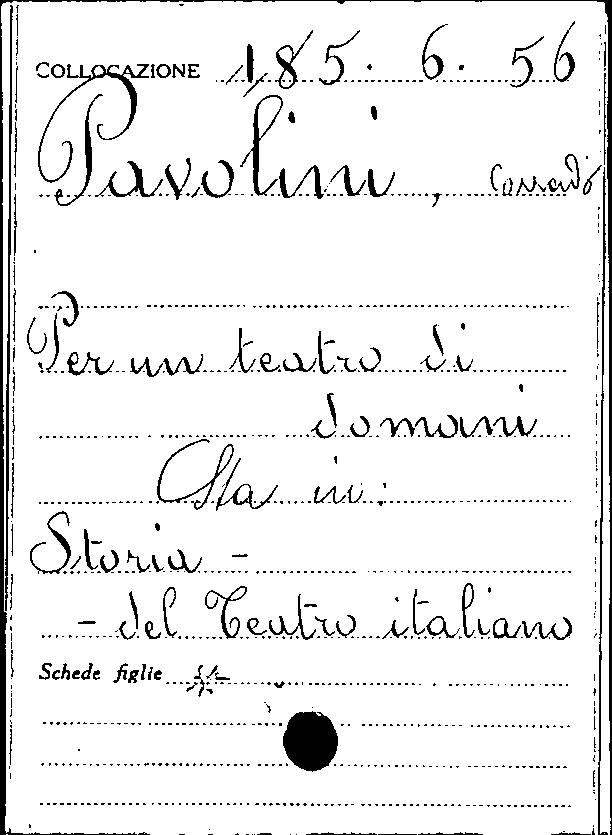 COLLOCAZIONE 185. 6. 56
Pavolini, Corrado
Per un teatro di
domani
Sta in:
Storia -
- del Teatro italiano
Schede figlie